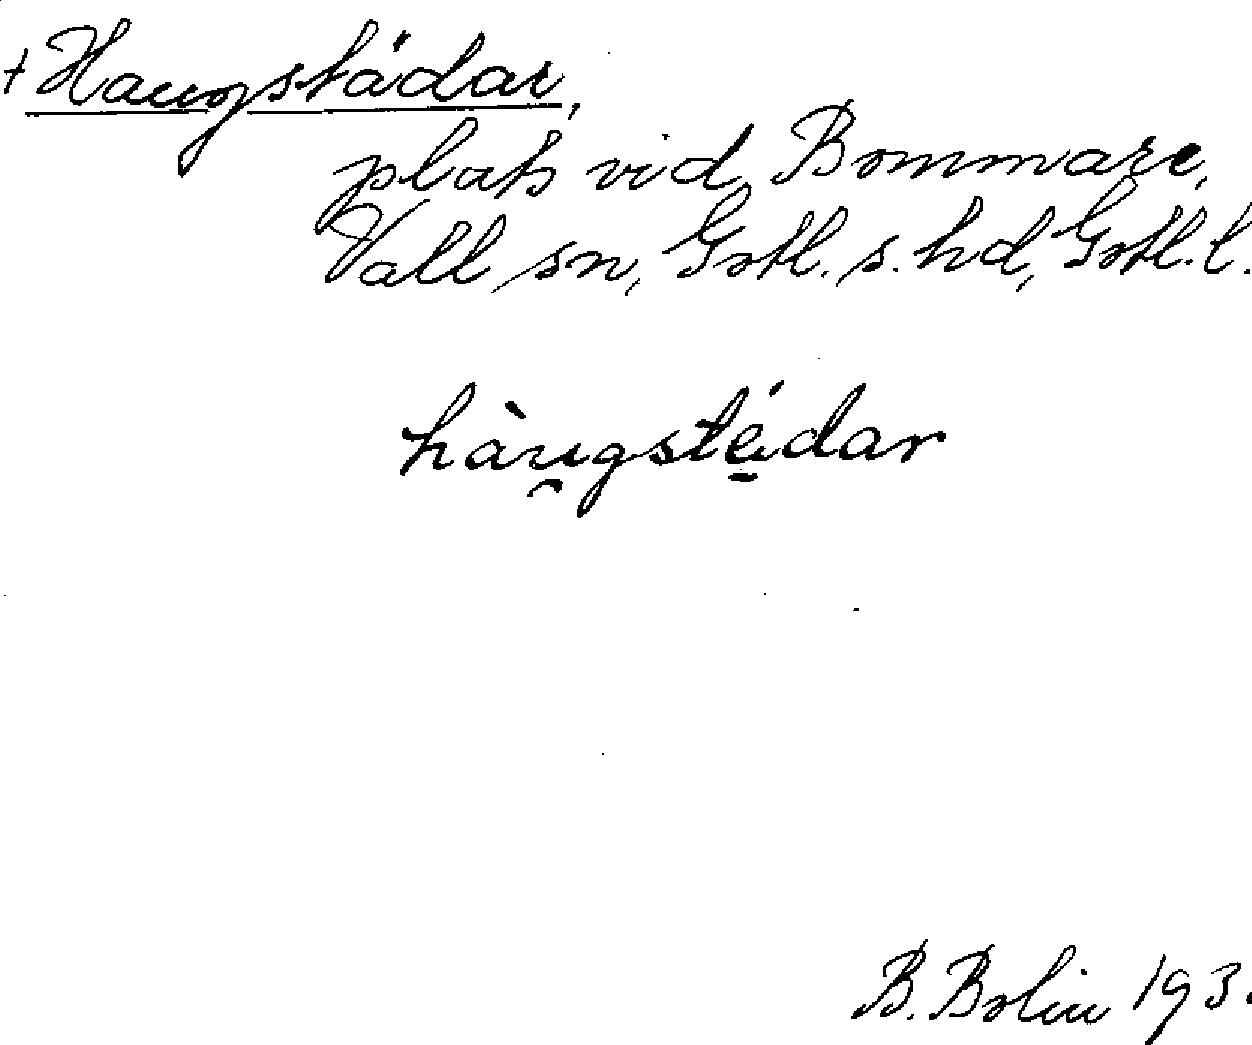 + Haugstädar,
plats vid Bommare,
Vall sn, Gotl. s. hd, Gotl. l.
hàu̯gsté̠dar
B. Bolin 193.